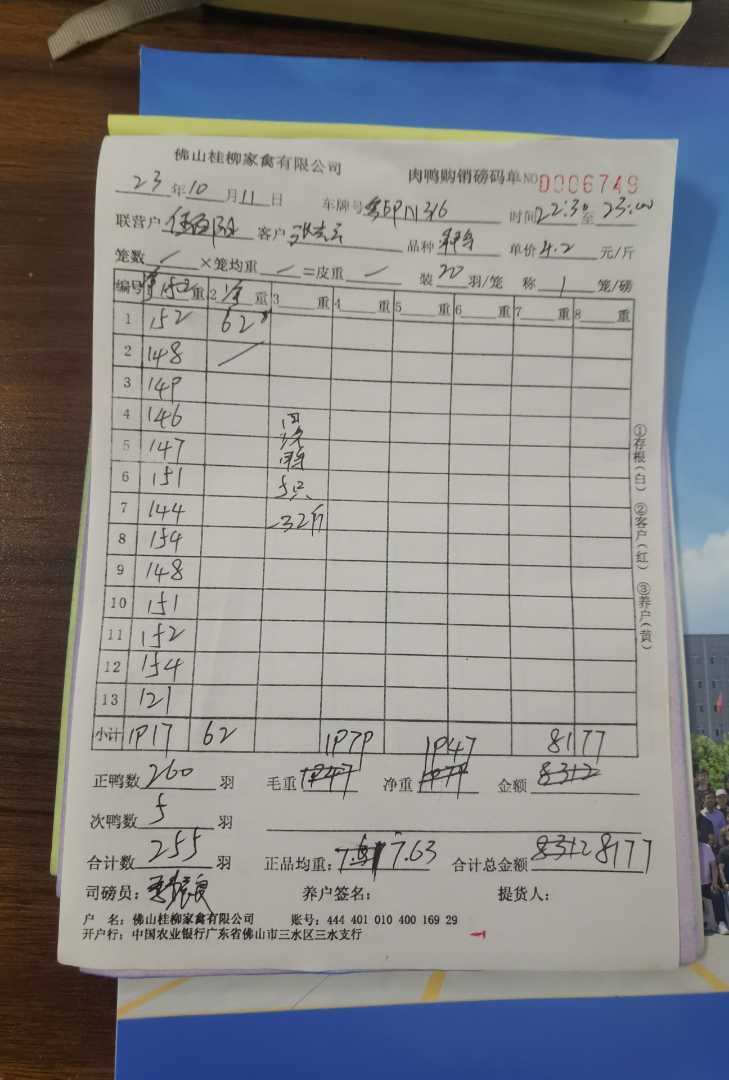 佛山桂柳家禽有限公司
肉鸭购销磅码单 NO 0006749
23年10月11日 车牌号 N316 时间22:30至23:00
联营户 客户 品种 单价4.2元/斤
笼数/×笼均重/=皮重/ 装20羽/笼 称1笼/磅
编号 152重 2 重 3 重 4 重 5 重 6 重 7 重 8 重
1 152 62
2 148 /
3 149
4 146
5 147
6 151 5只
7 144 32斤
8 154
9 148
10 151
11 152
12 154
13 121
小计 1917 62 1979 1947 8177
正鸭数260羽 毛重1947 净重1979 金额8312
次鸭数5羽
合计数255羽 正品均重:7.63 合计总金额8312 8177
司磅员: 养户签名: 提货人:
户 名:佛山桂柳家禽有限公司 账号:444 401 010 400 169 29
开户行:中国农业银行广东省佛山市三水区三水支行
①存根(白) ②客户(红) ③养户(黄)